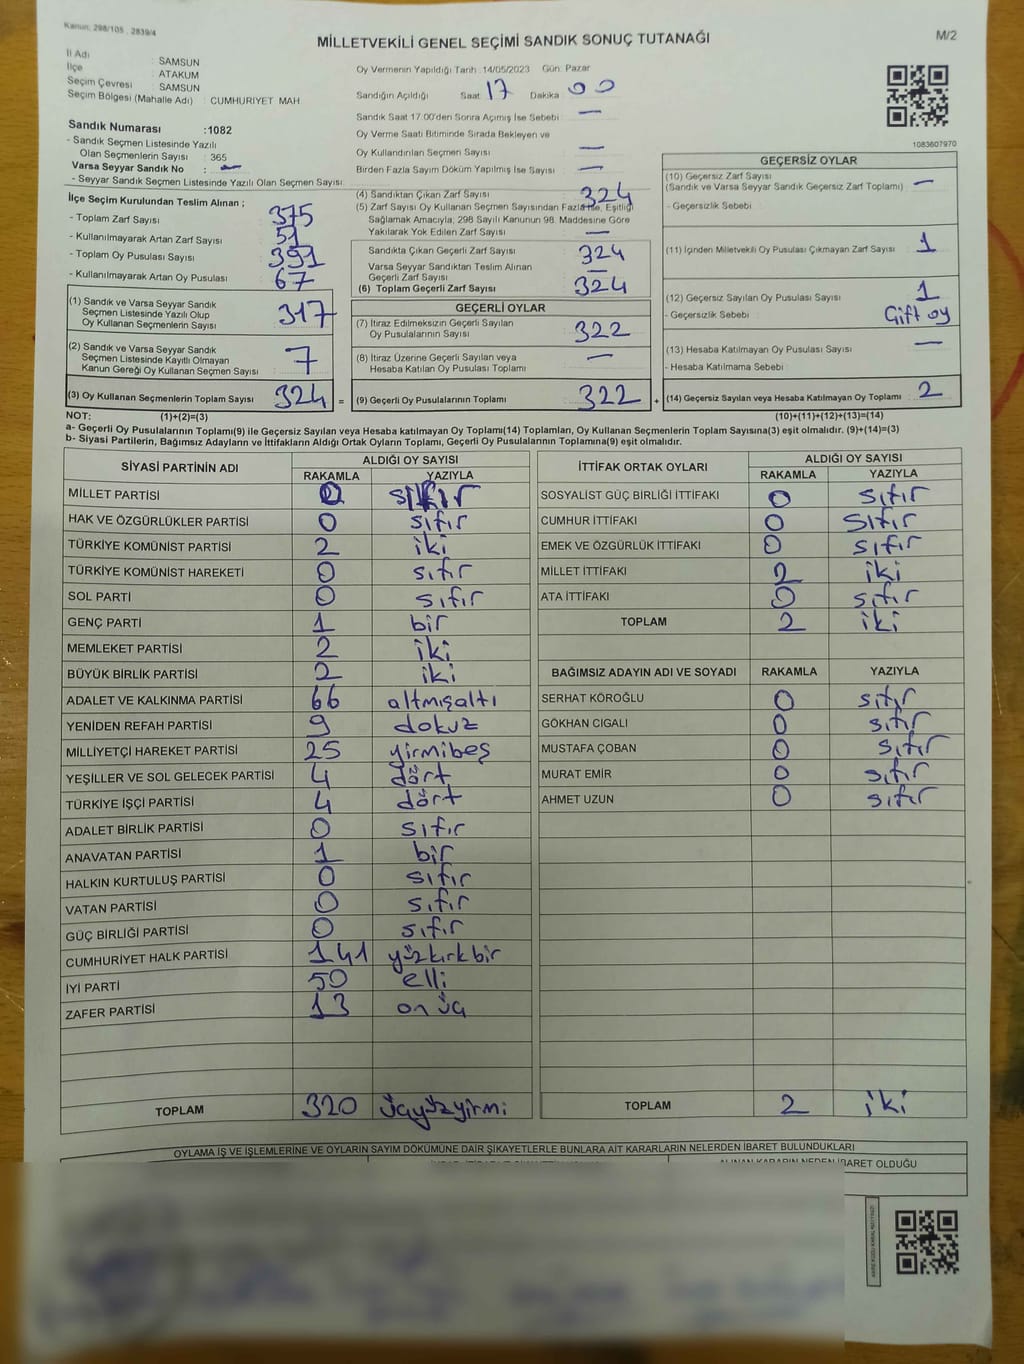 Kanun: 298/105 . 2839/4
MİLLETVEKİLİ GENEL SEÇİMİ SANDIK SONUÇ TUTANAĞI
M/2
İl Adı : SAMSUN
İlçe : ATAKUM
Seçim Çevresi : SAMSUN
Seçim Bölgesi (Mahalle Adı) : CUMHURIYET MAH
Sandık Numarası :1082
- Sandık Seçmen Listesinde Yazılı
Olan Seçmenlerin Sayısı : 365
Varsa Seyyar Sandık No : —
- Seyyar Sandık Seçmen Listesinde Yazılı Olan Seçmen Sayısı:
Oy Vermenin Yapıldığı Tarih :14/05/2023 Gün: Pazar
Sandığın Açıldığı Saat 17 Dakika 00
Sandık Saat 17:00'den Sonra Açımış İse Sebebi : —
Oy Verme Saati Bitiminde Sırada Bekleyen ve
Oy Kullandırılan Seçmen Sayısı —
Birden Fazla Sayım Döküm Yapılmış İse Sayısı : —
1083607970
İlçe Seçim Kurulundan Teslim Alınan ;
- Toplam Zarf Sayısı 375
- Kullanılmayarak Artan Zarf Sayısı 51
- Toplam Oy Pusulası Sayısı 391
- Kullanılmayarak Artan Oy Pusulası 67
(1) Sandık ve Varsa Seyyar Sandık
Seçmen Listesinde Yazılı Olup
Oy Kullanan Seçmenlerin Sayısı 317
(2) Sandık ve Varsa Seyyar Sandık
Seçmen Listesinde Kayıtlı Olmayan
Kanun Gereği Oy Kullanan Seçmen Sayısı 7
(3) Oy Kullanan Seçmenlerin Toplam Sayısı 324 =
(4) Sandıktan Çıkan Zarf Sayısı 324
(5) Zarf Sayısı Oy Kullanan Seçmen Sayısından Fazla İse, Eşitliği
Sağlamak Amacıyla, 298 Sayılı Kanunun 98. Maddesine Göre
Yakılarak Yok Edilen Zarf Sayısı —
Sandıkta Çıkan Geçerli Zarf Sayısı 324
Varsa Seyyar Sandıktan Teslim Alınan
Geçerli Zarf Sayısı —
(6) Toplam Geçerli Zarf Sayısı 324
GEÇERLİ OYLAR
(7) İtiraz Edilmeksizin Geçerli Sayılan
Oy Pusulalarının Sayısı 322
(8) İtiraz Üzerine Geçerli Sayılan veya
Hesaba Katılan Oy Pusulası Toplamı —
(9) Geçerli Oy Pusulalarının Toplamı 322 +
GEÇERSİZ OYLAR
(10) Geçersiz Zarf Sayısı
(Sandık ve Varsa Seyyar Sandık Geçersiz Zarf Toplamı) —
- Geçersizlik Sebebi :
(11) İçinden Milletvekili Oy Pusulası Çıkmayan Zarf Sayısı 1
(12) Geçersiz Sayılan Oy Pusulası Sayısı 1
- Geçersizlik Sebebi : Çift oy
(13) Hesaba Katılmayan Oy Pusulası Sayısı —
- Hesaba Katılmama Sebebi :
(14) Geçersiz Sayılan veya Hesaba Katılmayan Oy Toplamı 2
NOT: (1)+(2)=(3) (10)+(11)+(12)+(13)=(14)
a- Geçerli Oy Pusulalarının Toplamı(9) ile Geçersiz Sayılan veya Hesaba katılmayan Oy Toplamı(14) Toplamları, Oy Kullanan Seçmenlerin Toplam Sayısına(3) eşit olmalıdır. (9)+(14)=(3)
b- Siyasi Partilerin, Bağımsız Adayların ve İttifakların Aldığı Ortak Oyların Toplamı, Geçerli Oy Pusulalarının Toplamına(9) eşit olmalıdır.
SİYASİ PARTİNİN ADI ALDIĞI OY SAYISI
RAKAMLA YAZIYLA
MİLLET PARTİSİ 0 sıfır
HAK VE ÖZGÜRLÜKLER PARTİSİ 0 sıfır
TÜRKİYE KOMÜNİST PARTİSİ 2 iki
TÜRKİYE KOMÜNİST HAREKETİ 0 sıfır
SOL PARTİ 0 sıfır
GENÇ PARTİ 1 bir
MEMLEKET PARTİSİ 2 iki
BÜYÜK BİRLİK PARTİSİ 2 iki
ADALET VE KALKINMA PARTİSİ 66 altmışaltı
YENİDEN REFAH PARTİSİ 9 dokuz
MİLLİYETÇİ HAREKET PARTİSİ 25 yirmibeş
YEŞİLLER VE SOL GELECEK PARTİSİ 4 dört
TÜRKİYE İŞÇİ PARTİSİ 4 dört
ADALET BİRLİK PARTİSİ 0 sıfır
ANAVATAN PARTİSİ 1 bir
HALKIN KURTULUŞ PARTİSİ 0 sıfır
VATAN PARTİSİ 0 sıfır
GÜÇ BİRLİĞİ PARTİSİ 0 sıfır
CUMHURİYET HALK PARTİSİ 141 yüzkırkbir
İYİ PARTİ 50 elli
ZAFER PARTİSİ 13 on üç
TOPLAM 320 üçyüzyirmi
İTTİFAK ORTAK OYLARI ALDIĞI OY SAYISI
RAKAMLA YAZIYLA
SOSYALİST GÜÇ BİRLİĞİ İTTİFAKI 0 sıfır
CUMHUR İTTİFAKI 0 sıfır
EMEK VE ÖZGÜRLÜK İTTİFAKI 0 sıfır
MİLLET İTTİFAKI 2 iki
ATA İTTİFAKI 0 sıfır
TOPLAM 2 iki
BAĞIMSIZ ADAYIN ADI VE SOYADI RAKAMLA YAZIYLA
SERHAT KÖROĞLU 0 sıfır
GÖKHAN CIGALI 0 sıfır
MUSTAFA ÇOBAN 0 sıfır
MURAT EMİR 0 sıfır
AHMET UZUN 0 sıfır
TOPLAM 2 iki
OYLAMA İŞ VE İŞLEMLERİNE VE OYLARIN SAYIM DÖKÜMÜNE DAİR ŞİKAYETLERLE BUNLARA AİT KARARLARIN NELERDEN İBARET BULUNDUKLARI
ALINAN KARARIN NEDEN İBARET OLDUĞU